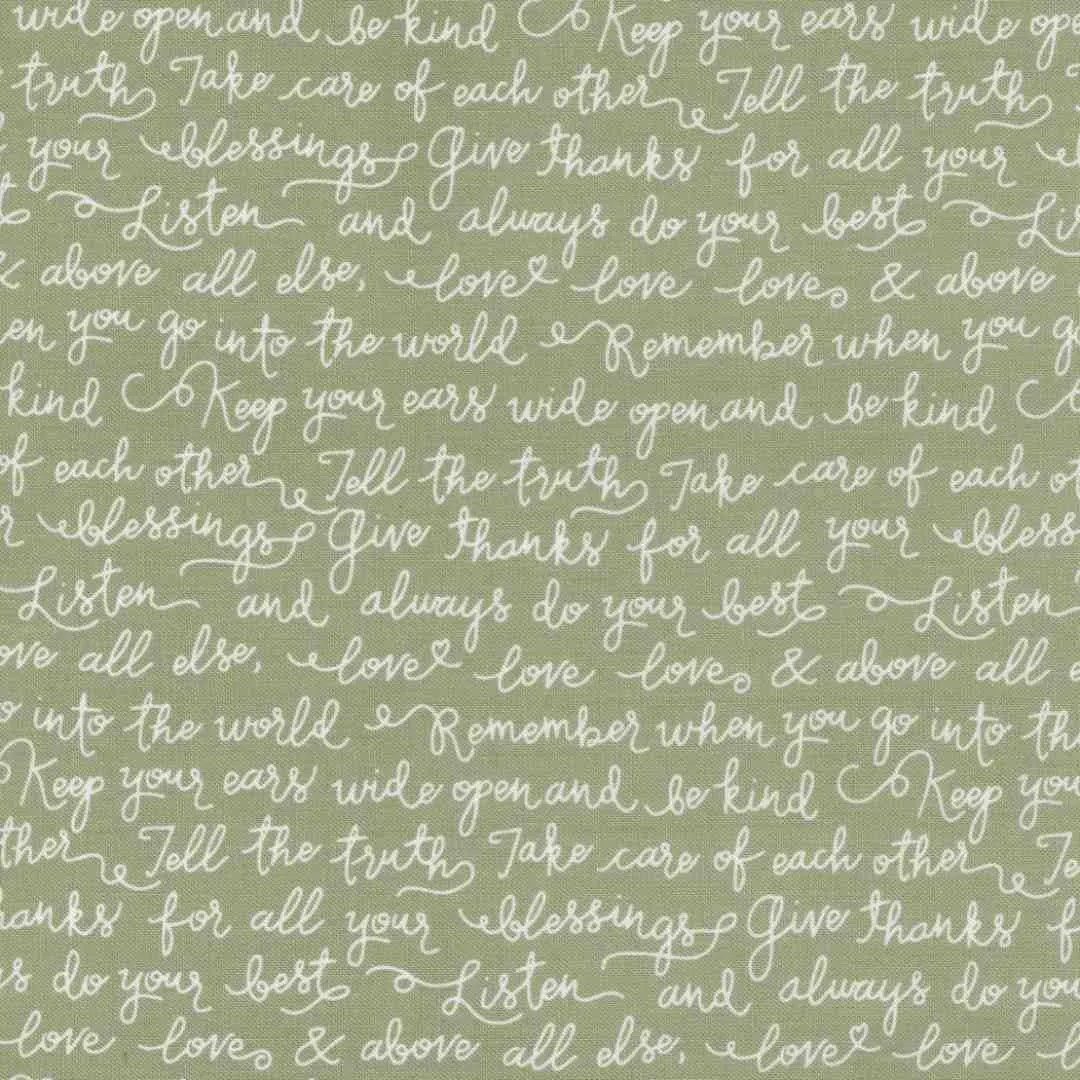 wide open and be kind Keep your ears wide ope
truth Take care of each other Tell the truth
your blessings Give thanks for all your
Listen and always do your best Lis
& above all else, love love love & above
en you go into the world Remember when you go
kind Keep your ears wide open and be kind
of each other Tell the truth Take care of each ot
r blessings Give thanks for all your bless
Listen and always do your best Listen
ove all else, love love love & above all e
o into the world Remember when you go into th
Keep your ears wide open and be kind Keep you
ther Tell the truth Take care of each other Te
hanks for all your blessings Give thanks f
s do your best Listen and always do you
love love & above all else, love love l